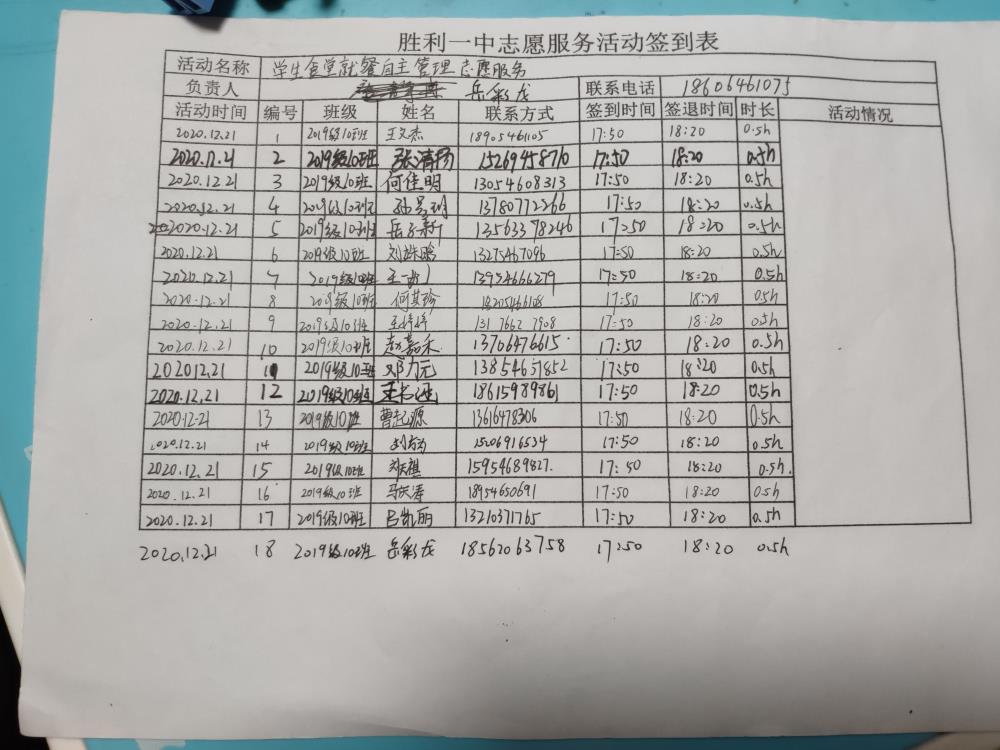 胜利一中志愿服务活动签到表
活动名称 学生食堂就餐自主管理志愿服务
负责人 岳彩龙 联系电话 18606461075
活动时间 编号 班级 姓名 联系方式 签到时间 签退时间 时长 活动情况
2020.12.21 1 2019级10班 王文杰 18905461105 17:50 18:20 0.5h
2020.12.21 2 2019级10班 张清扬 15269458710 17:50 18:20 0.5h
2020.12.21 3 2019级10班 何佳明 13054608313 17:50 18:20 0.5h
2020.12.21 4 2019级10班 13780772266 17:50 18:20 0.5h
2020.12.21 5 2019级10班 13563378246 17:50 18:20 0.5h
2020.12.21 6 2019级10班 13275467096 17:50 18:20 0.5h
2020.12.21 7 2019级10班 13954666279 17:50 18:20 0.5h
2020.12.21 8 2019级10班 何其珍 17:50 18:20 0.5h
2020.12.21 9 2019级10班 王婷婷 131 7662 7908 17:50 18:20 0.5h
2020.12.21 10 2019级10班 赵嘉禾 13706476615 17:50 18:20 0.5h
2020.12.21 11 2019级10班 邓力元 13854651852 17:50 18:20 0.5h
2020.12.21 12 2019级10班 18615989861 17:50 18:20 0.5h
2020.12.21 13 2019级10班 曹起源 13616478306 17:50 18:20 0.5h
2020.12.21 14 2019级10班 15206916534 17:50 18:20 0.5h
2020.12.21 15 2019级10班 15954689827. 17:50 18:20 0.5h.
2020.12.21 16 2019级10班 马庆涛 18954650691 17:50 18:20 0.5h
2020.12.21 17 2019级10班 吕凯丽 13210371765 17:50 18:20 0.5h
2020.12.21 18 2019级10班 岳彩龙 18562063758 17:50 18:20 0.5h